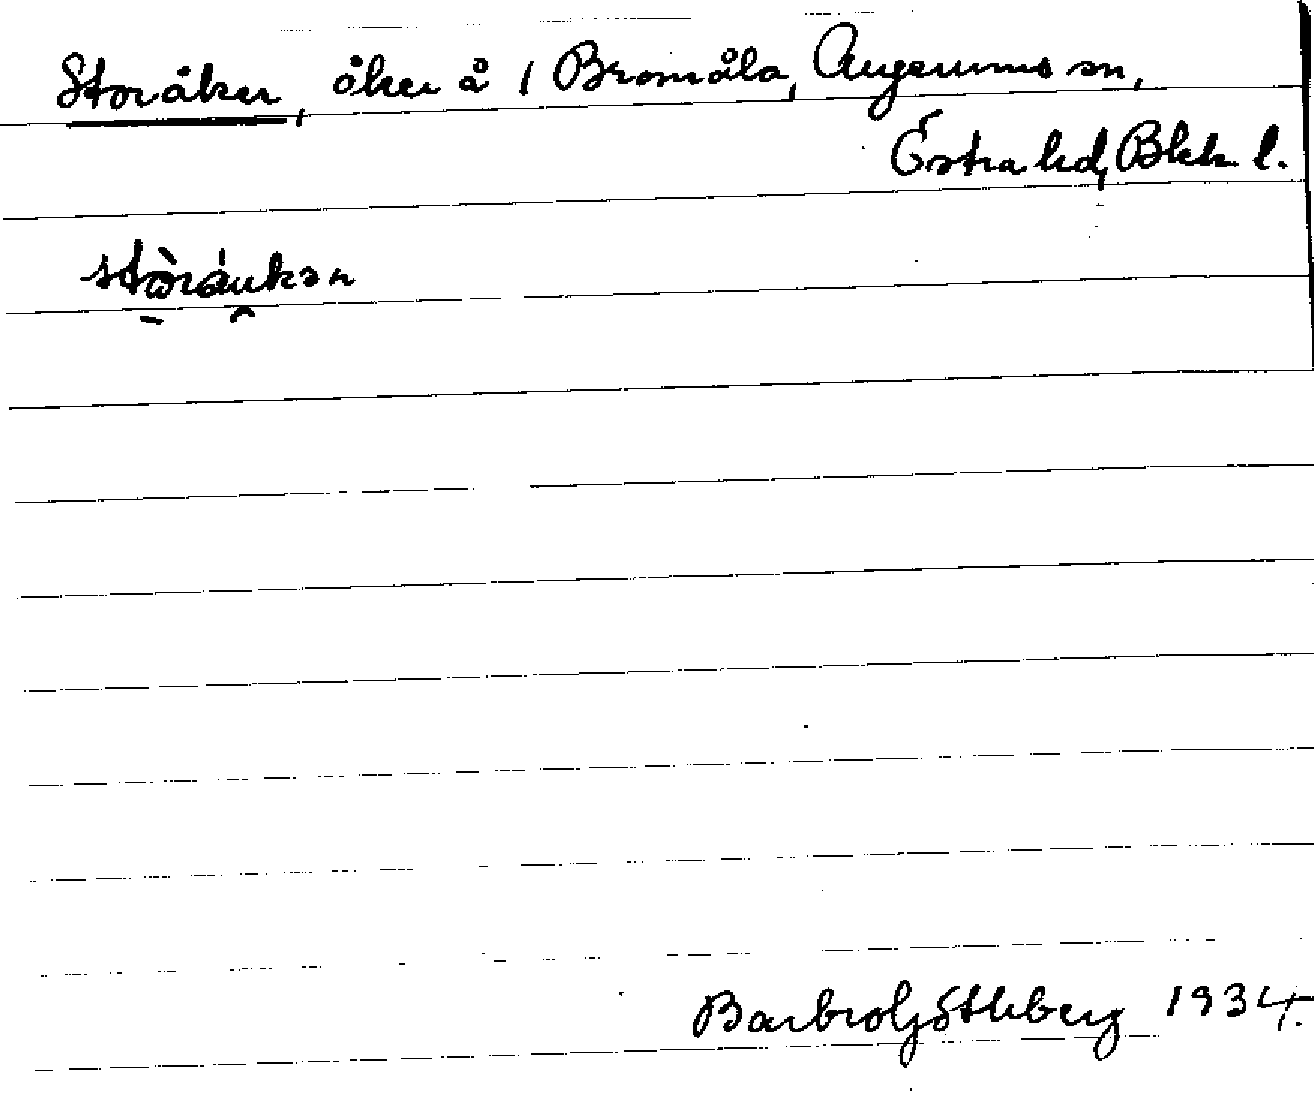 Storåker, åker å 1 Bromåla, Augerums sn,
Östra hd, Blek. l.
Barbro Göthberg 1934.